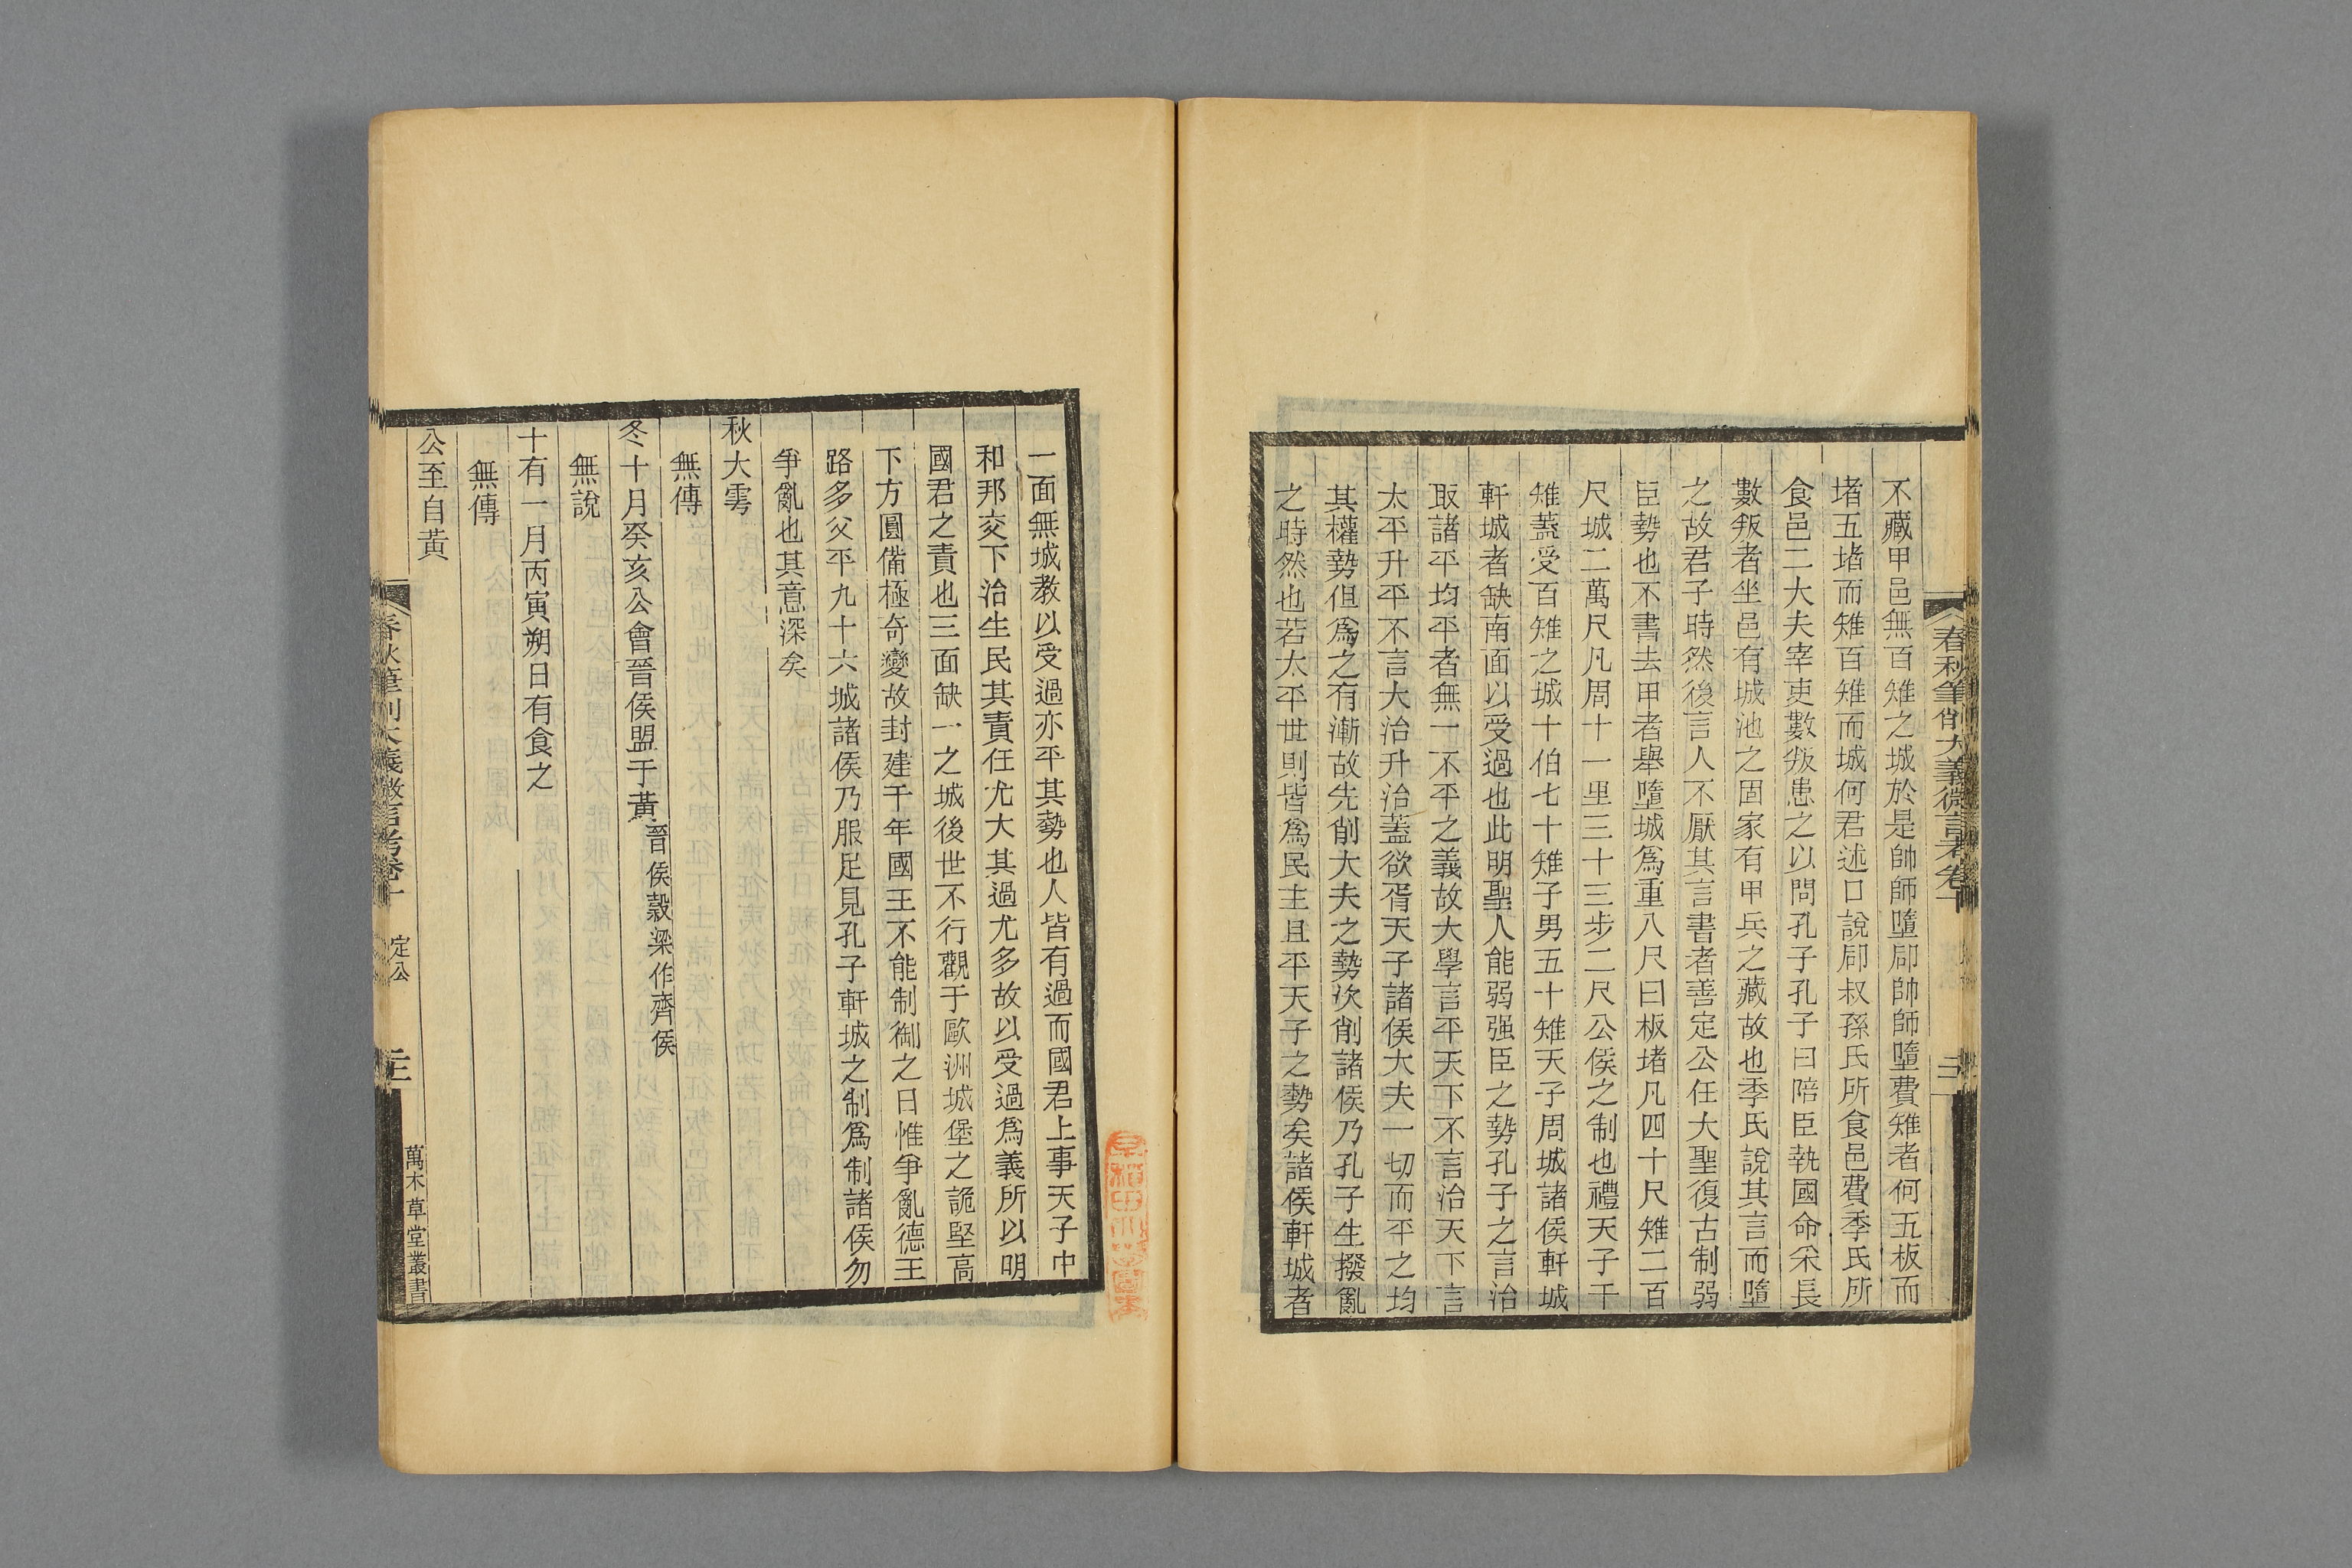 春秋筆削大義微言考卷十
不藏甲邑無百雉之城於是帥師墮郈帥師墮費雉者何五板而
堵五堵而雉百雉而城何君述口說郈叔孫氏所食邑費季氏所
食邑二大夫宰吏數叛患之以問孔子孔子曰陪臣執國命采長
數叛者坐邑有城池之固家有甲兵之藏故也季氏說其言而墮
之故君子時然後言人不厭其言書者善定公任大聖復古制弱
臣勢也不書去甲者舉墮城爲重八尺曰板堵凡四十尺雉二百
尺城二萬尺凡周十一里三十三步二尺公侯之制也禮天子千
雉蓋受百雉之城十伯七十雉子男五十雉天子周城諸侯軒城
軒城者缺南面以受過也此明聖人能弱强臣之勢孔子之言治
取諸平均平者無一不平之義故大學言平天下不言治天下言
太平升平不言大治升治蓋欲胥天子諸侯大夫一切而平之均
其權勢但爲之有漸故先削大夫之勢次削諸侯乃孔子生撥亂
之時然也若太平世則皆爲民主且平天子之勢矣諸侯軒城者
一面無城教以受過亦平其勢也人皆有過而國君上事天子中
和邦交下治生民其責任尤大其過尤多故以受過爲義所以明
國君之責也三面缺一之城後世不行觀于歐洲城堡之詭堅高
下方圓備極奇變故封建千年國王不能制御之日惟爭亂德王
路多父平九十六城諸侯乃服足見孔子軒城之制爲制諸侯勿
爭亂也其意深矣
秋大雩
無傳
冬十月癸亥公會晉侯盟于黃晉侯榖梁作齊侯
無說
十有一月丙寅朔日有食之
無傳
公至自黃
春秋筆削大義微言考卷十 定公
萬木草堂叢書